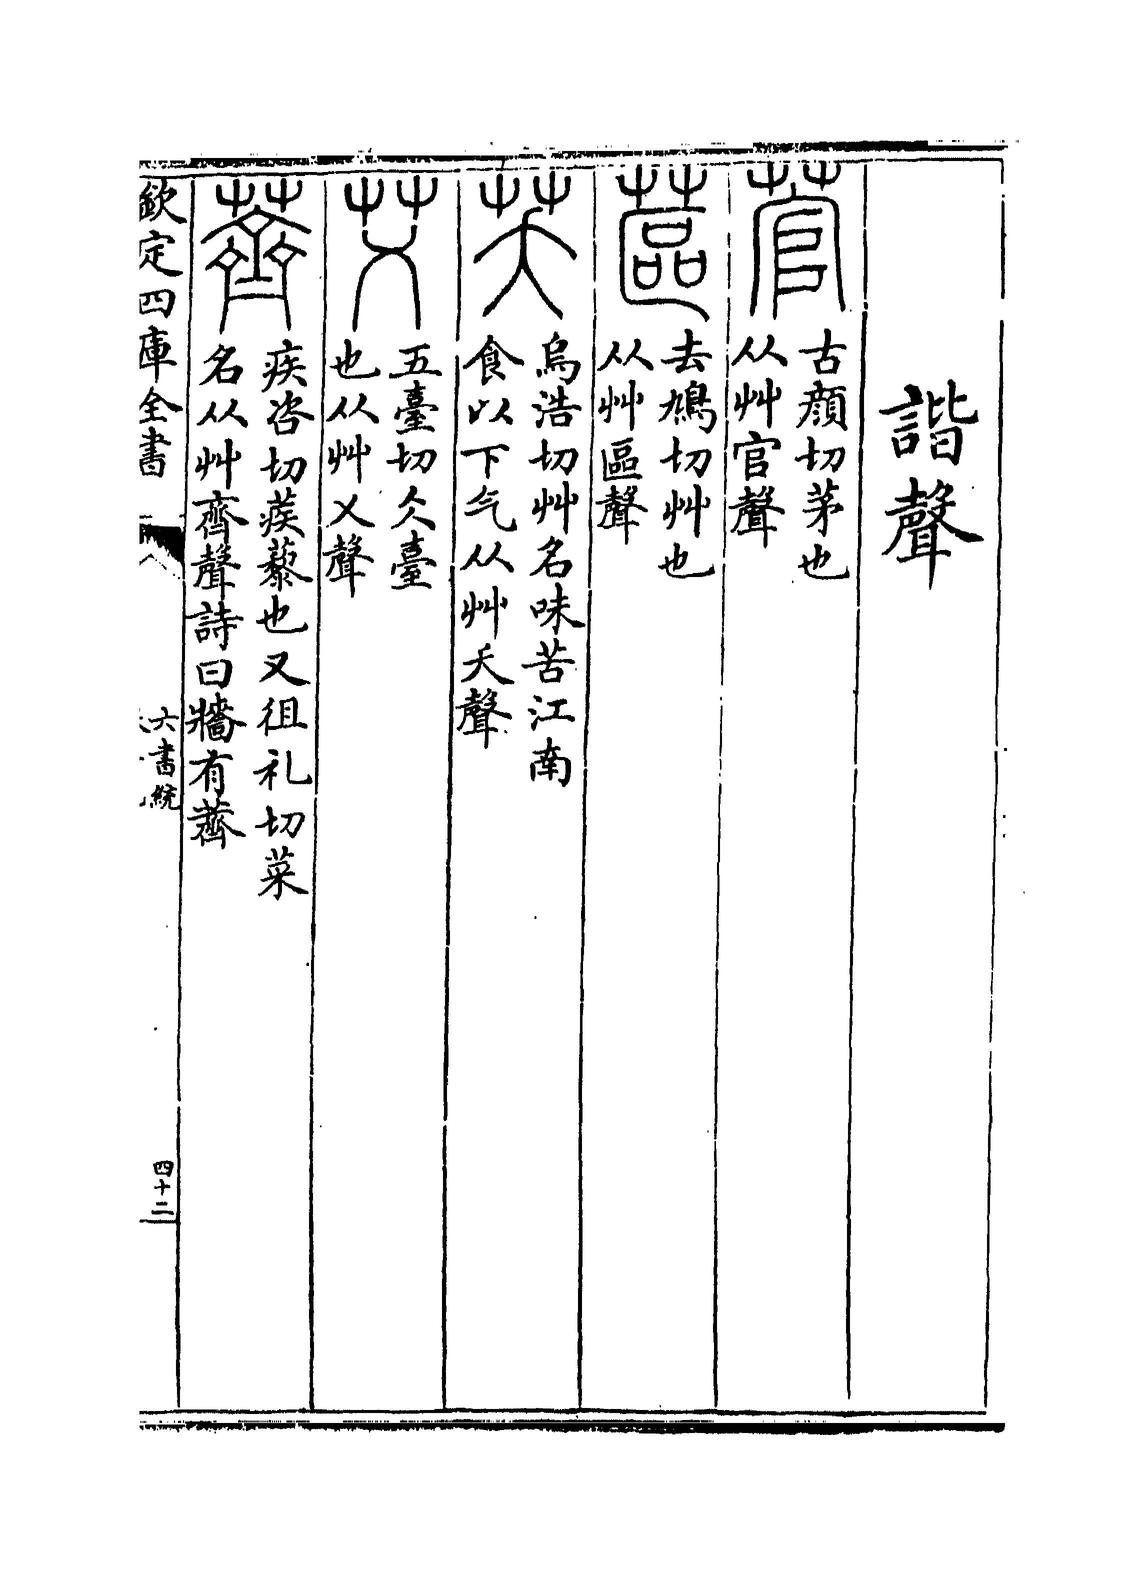 諧聲
菅
古顔切茅也
从艸官聲
蓲
去鳩切艸也
从艸區聲
芺
烏浩切艸名味苦江南
食以下气从艸夭聲
艾
五臺切仌臺
也从艸乂聲
薺
疾咨切蒺藜也又徂礼切菜
名从艸齊聲詩曰牆有薺
欽定四庫全書
六書統
四十二